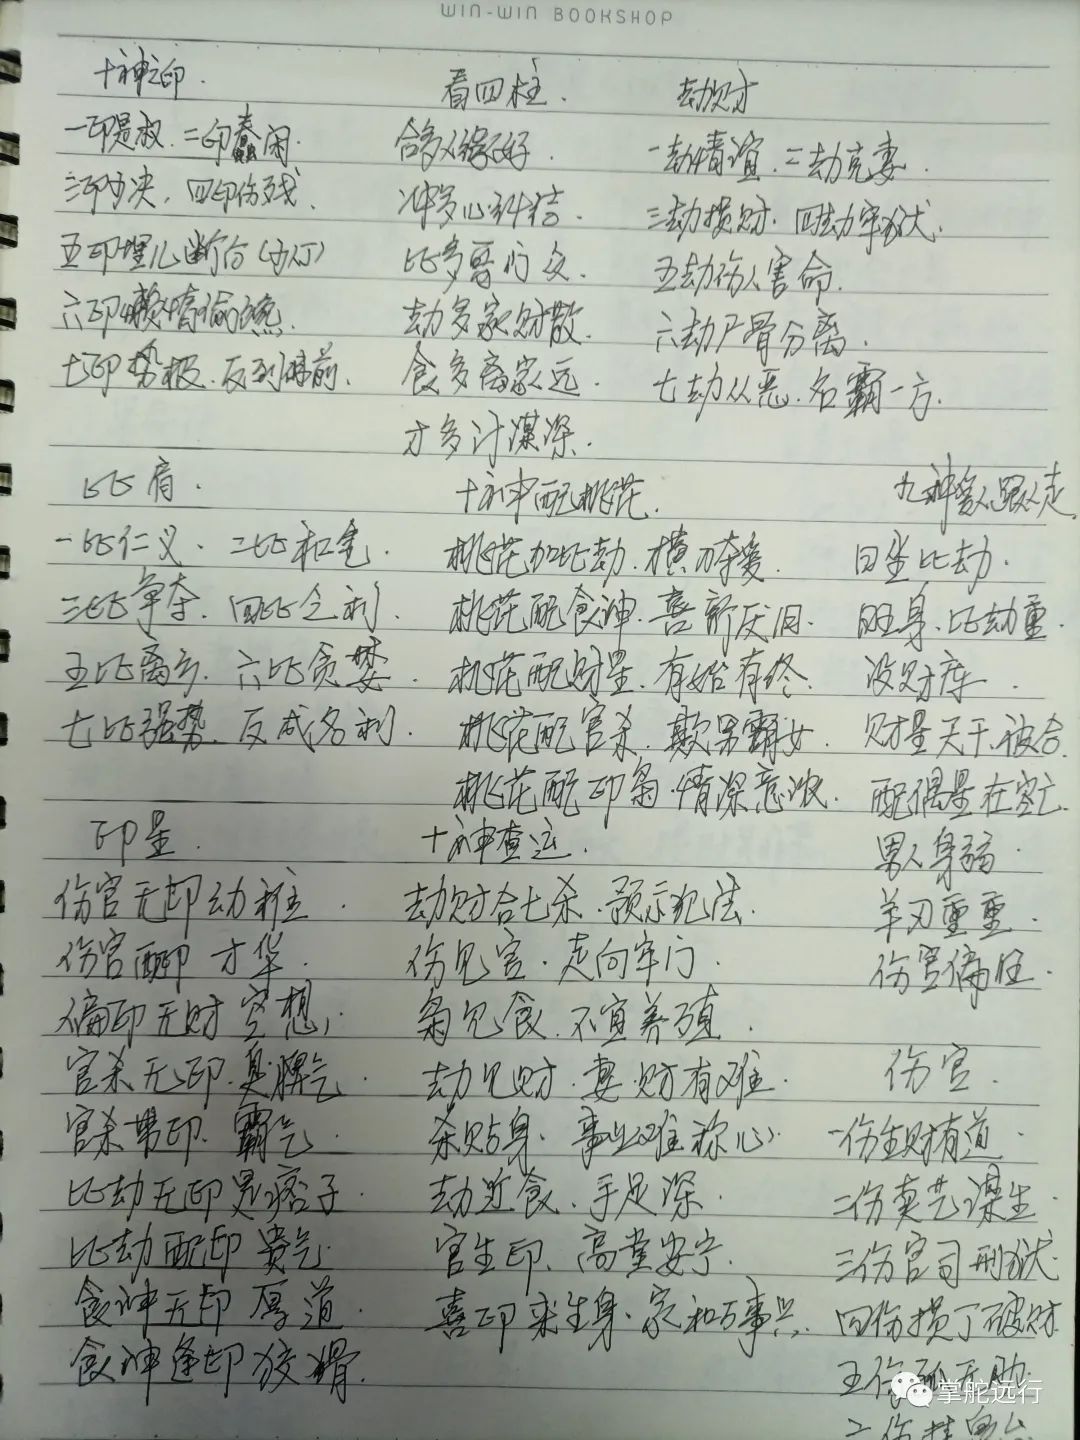 WIN-WIN BOOKSHOP
十神之印.
一印是叔.二印春闲.
三印少决,四印伤残.
五印埋儿断后(少丁)
六印懒惰
七印势极.反到前.
看四柱.
合多人缘好.
冲多心纠结.
比多哥们多.
劫多家财散.
食多离家远.
才多计谋深.
劫财
一劫情谊.二劫克妻.
三劫损财.四劫牢狱.
五劫伤人害命.
六劫尸骨分离.
七劫从恶.名霸一方.
比肩.
一比仁义、二比和气.
三比争夺.四比亡利.
五比离乡、六比贪婪.
七比强势、反成名利.
十神配桃花.
桃花加比劫.横刀夺爱.
桃花配食神.喜新厌旧.
桃花配财星.有始有终.
桃花配官杀.欺男霸女.
桃花配印枭.情深意浓.
九种人跟人走.
日坐比劫.
旺身、比劫重.
没财库.
财星天干、被合.
配偶星在空亡.
男人身弱.
羊刃重重.
伤官偏旺.
印星.
伤官无印动粗.
伤官配印 才华.
偏印无财 空想.
官杀无印.臭脾气.
官杀带印.霸气.
比劫无印 是痞子.
比劫配印 贵气.
食神无印 厚道.
食神逢印 狡猾.
十神查运.
劫财合七杀.预示犯法.
伤见官.走向牢门.
枭见食.不宜养殖.
劫见财.妻.财有难.
杀贴身.事业难称心.
劫近食.手足深.
官生印.高堂安宁.
喜印来生身.家和万事兴.
伤官.
一伤生财有道.
二伤卖艺谋生.
三伤官司刑狱.
四伤损丁破财.
五伤孤无助.
掌舵远行